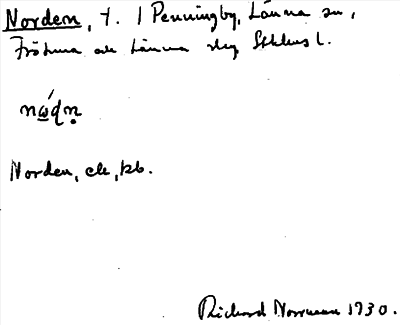 Norden, t. / Penningby, Länna sn,
Frötuna ok Länna slg Sthlms l.
nώ̲dṇ
Norden, ek, kb.
Richard Norrman 1930.